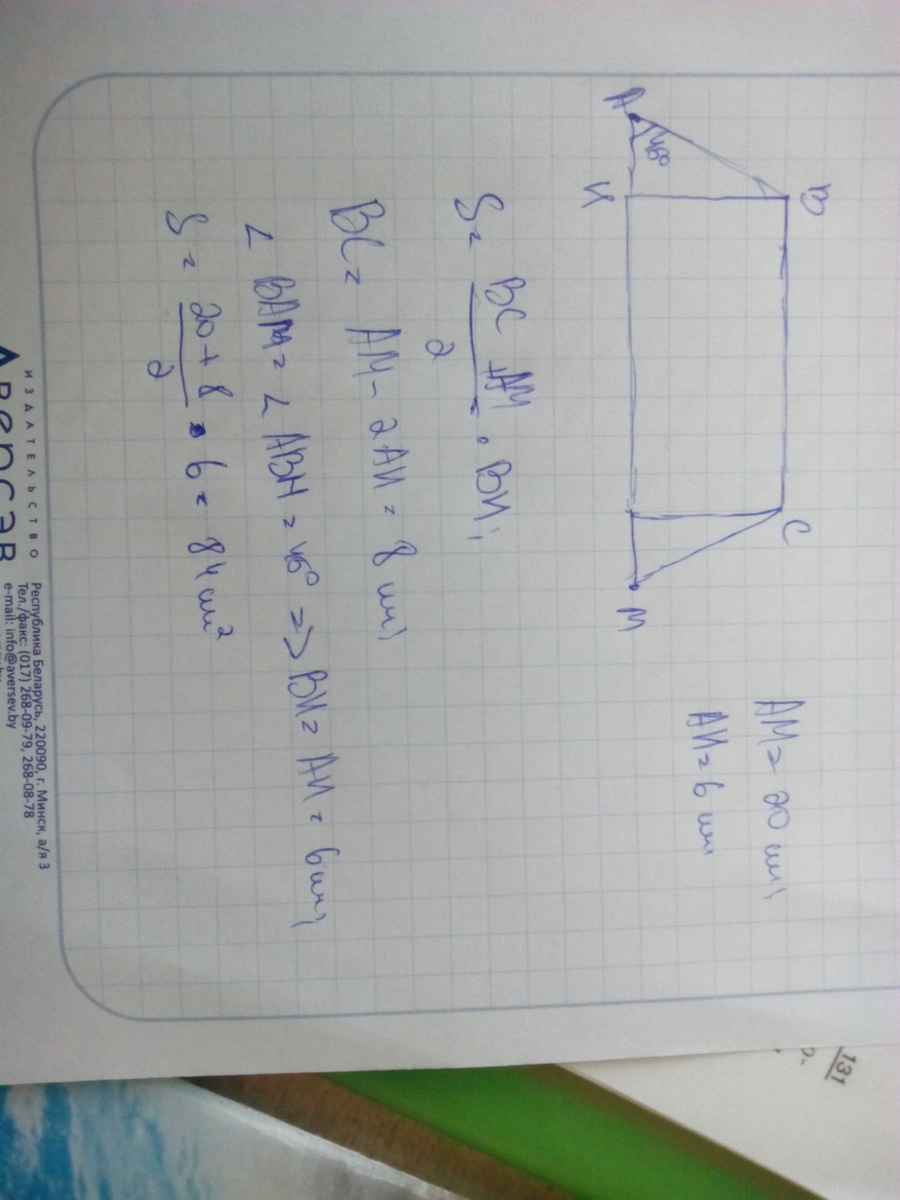 B
C
A
45°
H
M
AM = 20 см;
AH = 6 см;
S = (BC + AM)/2 · BH;
BC = AM - 2AH = 8 см;
∠ BAM = ∠ ABH = 45° => BH = AH = 6 см;
S = (20 + 8)/2 · 6 = 84 см²
ИЗДАТЕЛЬСТВО
Аверсэв
Республика Беларусь, 220090, г. Минск, а/я 3
Тел./факс: (017) 268-09-79, 268-08-78
e-mail: info@aversev.by
131